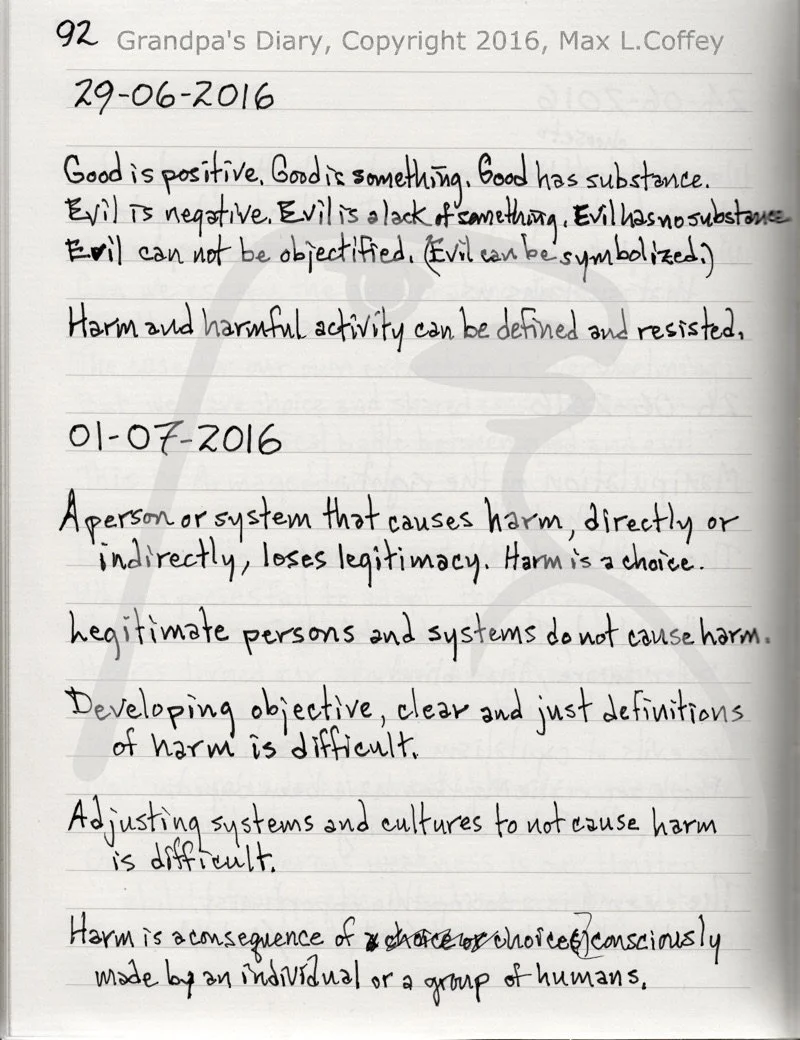 92 Grandpa's Diary, Copyright 2016, Max L.Coffey
29-06-2016
Good is positive. Good is something. Good has substance.
Evil is negative. Evil is a lack of something. Evil has no substance
Evil can not be objectified. (Evil can be symbolized.)
Harm and harmful activity can be defined and resisted.
01-07-2016
A person or system that causes harm, directly or
indirectly, loses legitimacy. Harm is a choice.
Legitimate persons and systems do not cause harm.
Developing objective, clear and just definitions
of harm is difficult.
Adjusting systems and cultures to not cause harm
is difficult.
Harm is a consequence of a choice or choice[s] consciously
made by an individual or a group of humans.